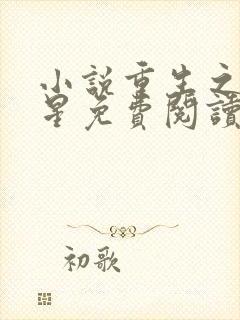 小說重生之
星免費閱讀
初歌